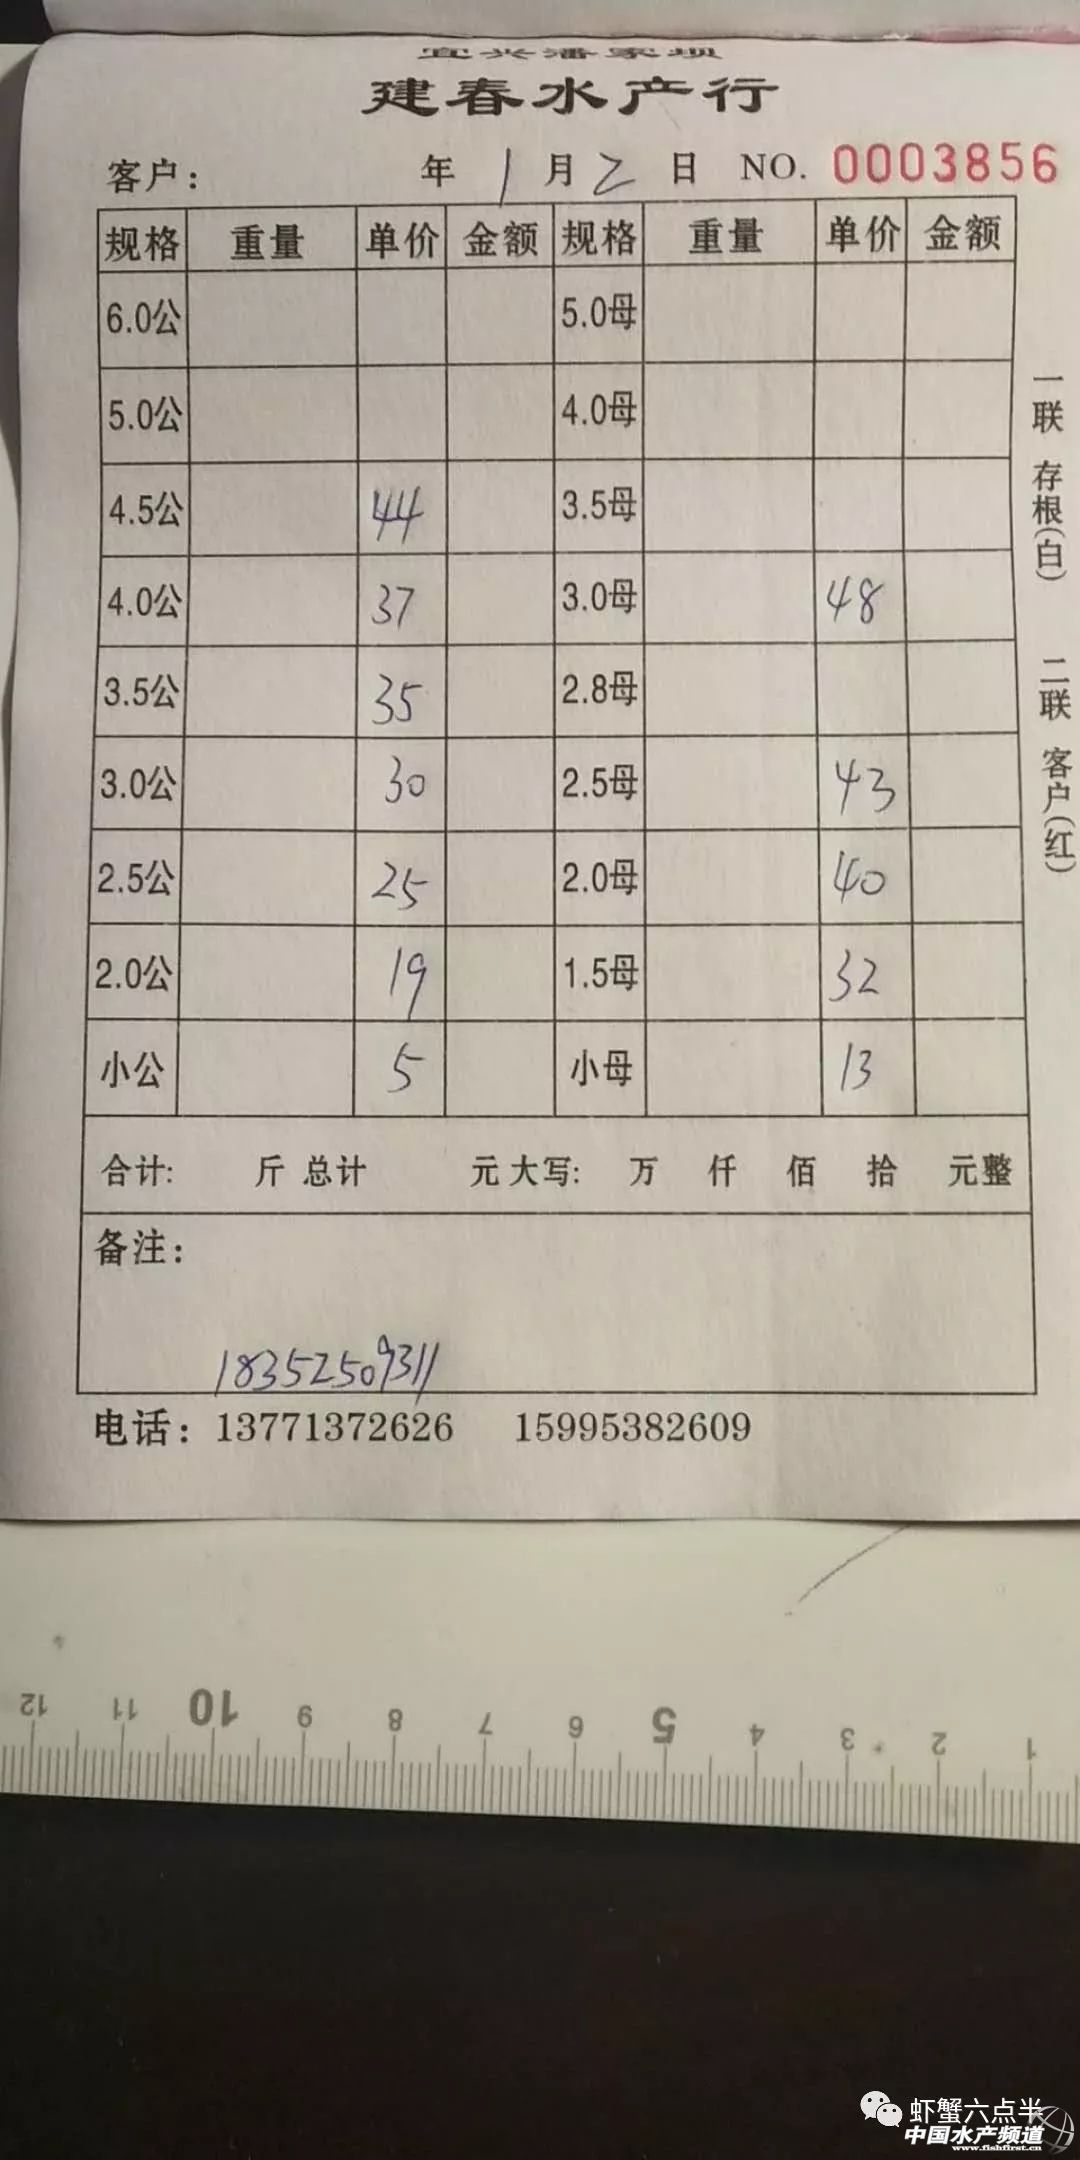 宜兴潘家坝
建春水产行
客户: 年 1 月 2 日 NO. 0003856
规格 重量 单价 金额 规格 重量 单价 金额
6.0公 5.0母
5.0公 4.0母
4.5公 44 3.5母
4.0公 37 3.0母 48
3.5公 35 2.8母
3.0公 30 2.5母 43
2.5公 25 2.0母 40
2.0公 19 1.5母 32
小公 5 小母 13
合计: 斤 总计 元 大写: 万 仟 佰 拾 元整
备注:
18352509311
电话: 13771372626 15995382609
一联 存根(白) 二联 客户(红)
12 11 10 9 8 7 6 5 4 3 2 1
虾蟹六点半
中国水产频道
www.fishfirst.cn